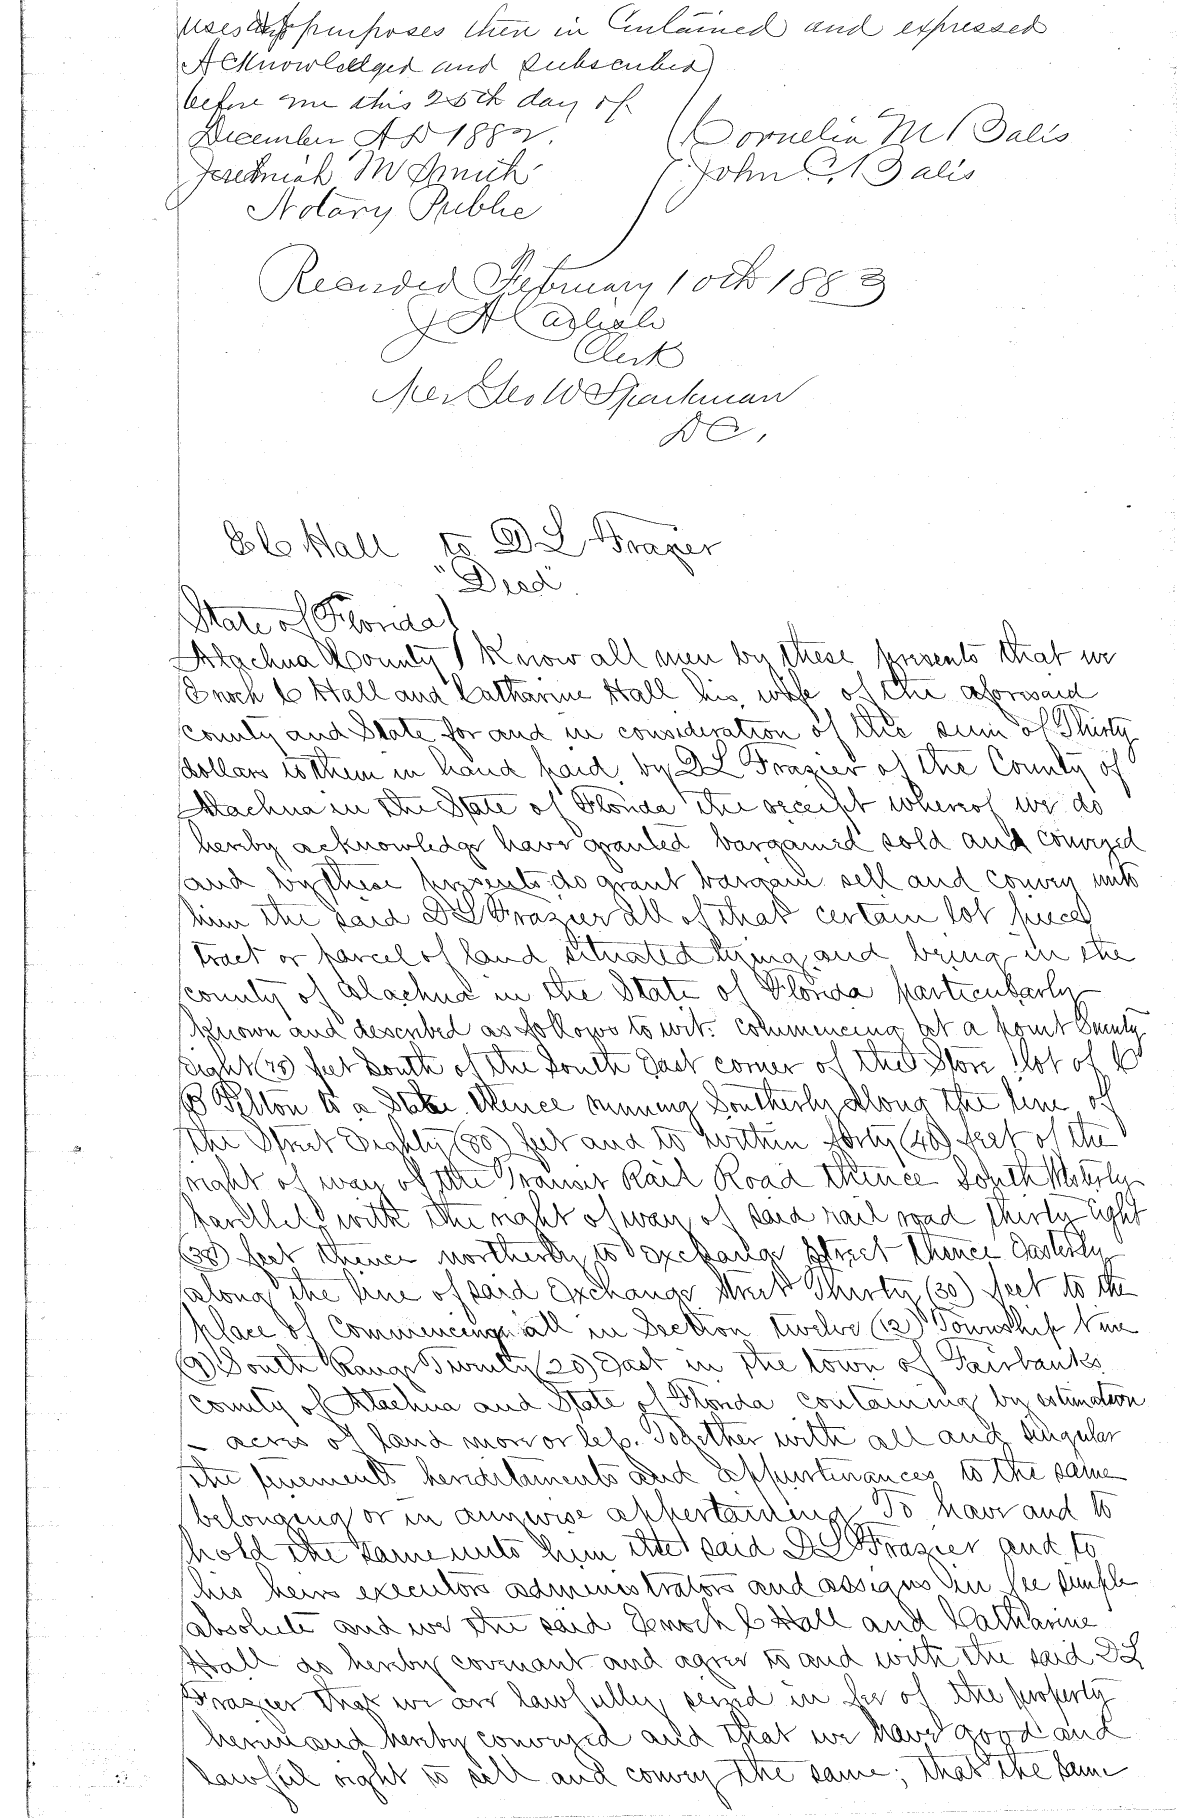 uses and purposes then in Contained and expressed
Acknowledged and subscribed
before me this 25th day of
December A D 1882.
Cornelia M Balis
Jeremiah M Smith
John C. Balis
Notary Public
Recorded February 10th 1883
J A Carlisle
Clerk
Per Geo W Sparkman
DC.
E C Hall to D L Frazier
"Deed"
State of Florida)
Alachua County) Know all men by these presents that we
Enoch C Hall and Catharine Hall his wife of the aforesaid
county and State for and in consideration of the sum of Thirty
dollars to them in hand paid by D L Frazier of the County of
Alachua in the State of Florida the receipt whereof we do
hereby acknowledge have granted bargained sold and conveyed
and by these presents do grant bargain sell and convey unto
him the said D L Frazier all of that certain lot piece
tract or parcel of land situated lying and being in the
county of Alachua in the State of Florida particularly
known and described as follows to wit: commencing at a point Seventy
Eight (78) feet South of the South East corner of the Store lot of C
B Pelton to a Stake thence running Southerly along the line of
the Street Eighty (80) feet and to within forty (40) feet of the
right of way of the Transit Rail Road thence South Westerly
parellel with the right of way of said rail road thirty Eight
(38) feet thence northerly to Exchange Street thence Easterly
along the line of said Exchange Street Thirty (30) feet to the
place of Commencing all in Section twelve (12) Township Nine
(9) South Range Twenty (20) East in the town of Fairbanks
county of Alachua and State of Florida containing by estimation
– acres of land more or less. Together with all and singular
the tenements hereditaments and appurtenances to the same
belonging or in anywise appertaining To have and to
hold the same unto him the said D L Frazier and to
his heirs executors administrators and assigns in fee simple
absolute and we the said Enoch C Hall and Catharine
Hall do hereby covenant and agree to and with the said D L
Frazier that we are lawfully seized in fee of the property
herein and hereby conveyed and that we have good and
lawful right to sell and convey the same; that the same